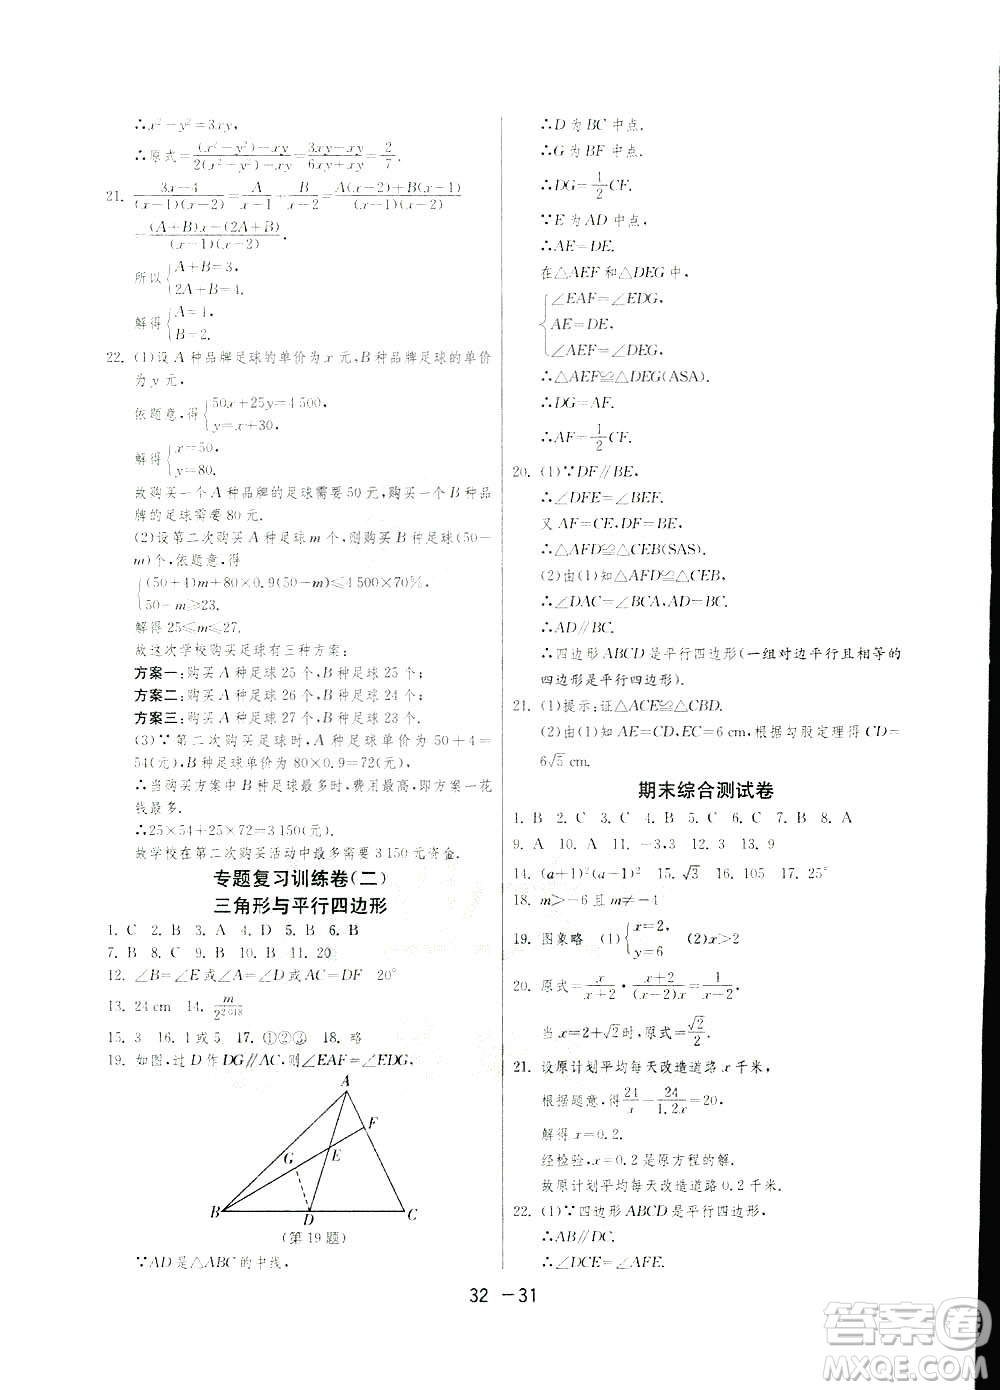 ∴x²－y²＝3xy，
∴原式＝\frac{(x²－y²)－xy}{2(x²－y²)＋xy}＝\frac{3xy－xy}{6xy＋xy}＝\frac{2}{7}.
21. \frac{3x－4}{(x－1)(x－2)}＝\frac{A}{x－1}＋\frac{B}{x－2}＝\frac{A(x－2)＋B(x－1)}{(x－1)(x－2)}
＝\frac{(A＋B)x－(2A＋B)}{(x－1)(x－2)}.
所以{A＋B＝3,
2A＋B＝4.
解得{A＝1,
B＝2.
22. (1)设 A 种品牌足球的单价为 x 元，B 种品牌足球的单价
为 y 元，
依题意，得{50x＋25y＝4 500,
y＝x＋30,
解得{x＝50,
y＝80.
故购买一个 A 种品牌的足球需要 50 元，购买一个 B 种品
牌的足球需要 80 元.
(2)设第二次购买 A 种足球 m 个，则购买 B 种足球(50－
m)个，依题意，得
{(50＋4)m＋80×0.9(50－m)≤4 500×70%,
50－m≥23.
解得 25≤m≤27.
故这次学校购买足球有三种方案：
方案一：购买 A 种足球 25 个，B 种足球 25 个；
方案二：购买 A 种足球 26 个，B 种足球 24 个；
方案三：购买 A 种足球 27 个，B 种足球 23 个.
(3)∵第二次购买足球时，A 种足球单价为 50＋4＝
54(元)，B 种足球单价为 80×0.9＝72(元)，
∴当购买方案中 B 种足球最多时，费用最高，即方案一花
钱最多.
∴25×54＋25×72＝3 150(元).
故学校在第二次购买活动中最多需要 3 150 元资金.
专题复习训练卷(二)
三角形与平行四边形
1. C 2. B 3. A 4. D 5. B 6. B
7. B 8. C 9. B 10. B 11. 20
12. ∠B＝∠E 或∠A＝∠D 或 AC＝DF 20°
13. 24 cm 14. \frac{m}{2^{2 018}}
15. 3 16. 1 或 5 17. ①②③ 18. 略
19. 如图，过 D 作 DG∥AC，则∠EAF＝∠EDG，
A
F
E
G
B
D
C
(第 19 题)
∵AD 是△ABC 的中线，
∴D 为 BC 中点.
∴G 为 BF 中点.
∴DG＝\frac{1}{2}CF.
∵E 为 AD 中点，
∴AE＝DE.
在△AEF 和△DEG 中，
{∠EAF＝∠EDG,
AE＝DE,
∠AEF＝∠DEG,
∴△AEF≌△DEG(ASA).
∴DG＝AF.
∴AF＝\frac{1}{2}CF.
20. (1)∵DF∥BE，
∴∠DFE＝∠BEF.
又 AF＝CE，DF＝BE，
∴△AFD≌△CEB(SAS).
(2)由(1)知△AFD≌△CEB，
∴∠DAC＝∠BCA，AD＝BC.
∴AD∥BC.
∴四边形 ABCD 是平行四边形(一组对边平行且相等的
四边形是平行四边形).
21. (1)提示：证△ACE≌△CBD.
(2)由(1)知 AE＝CD，EC＝6 cm，根据勾股定理得 CD＝
6√5 cm.
期末综合测试卷
1. B 2. C 3. C 4. B 5. C 6. C 7. B 8. A
9. A 10. A 11. －3,3 12. 3 13. 9
14. (a＋1)²(a－1)² 15. √3 16. 105 17. ②
18. m>－6 且 m≠－4
19. 图象略 (1){x＝2,
y＝6 (2)x>2
20. 原式＝\frac{x}{x＋2}·\frac{x＋2}{(x－2)x}＝\frac{1}{x－2}
当 x＝2＋√2时，原式＝\frac{√2}{2}.
21. 设原计划平均每天改造道路 x 千米，
根据题意，得\frac{24}{x}－\frac{24}{1.2x}＝20,
解得 x＝0.2.
经检验，x＝0.2 是原方程的解.
故原计划平均每天改造道路 0.2 千米.
22. (1)∵四边形 ABCD 是平行四边形，
∴AB∥DC.
∴∠DCE＝∠AFE.
32 －31
答案圈
MXQE.COM